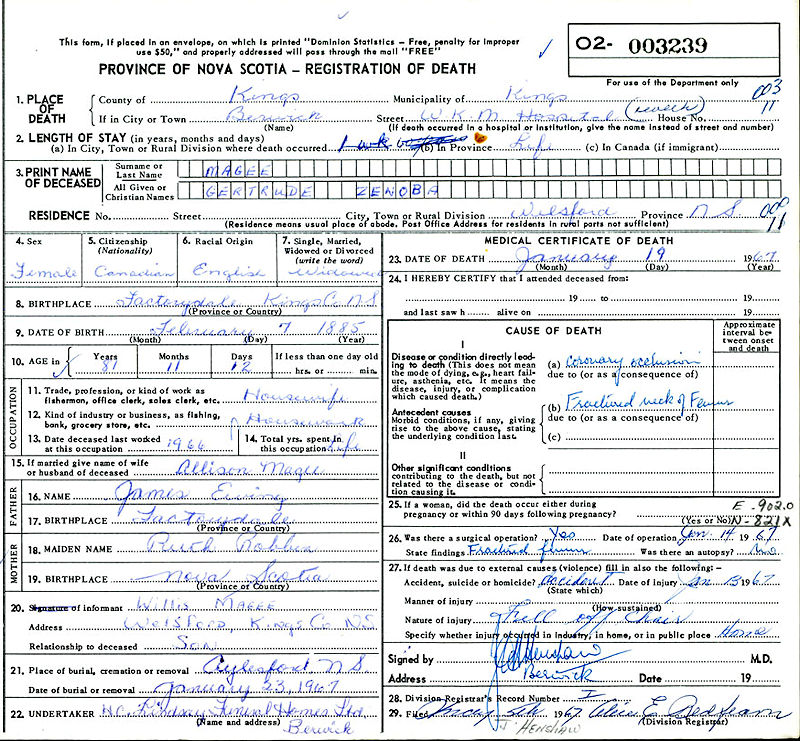 This form, if placed in an envelope, on which is printed "Dominion Statistics – Free, penalty for improper
use $50," and properly addressed will pass through the mail "FREE"
O2- 003239
PROVINCE OF NOVA SCOTIA – REGISTRATION OF DEATH
For use of the Department only
003
1. PLACE OF DEATH County of Kings Municipality of Kings
11
If in City or Town Berwick Street W.K.M. Hospital (week) House No.
(Name) (If death occurred in a hospital or institution, give the name instead of street and number)
2. LENGTH OF STAY (in years, months and days)
(a) In City, Town or Rural Division where death occurred 1 wk (b) In Province Life (c) In Canada (if immigrant)
3. PRINT NAME OF DECEASED
Surname or Last Name MAGEE
All Given or Christian Names GERTRUDE ZENOBA
RESIDENCE No. Street City, Town or Rural Division Province N S
11
(Residence means usual place of abode. Post Office Address for residents in rural parts not sufficient)
4. Sex
Female
5. Citizenship (Nationality)
Canadian
6. Racial Origin
English
7. Single, Married, Widowed or Divorced (write the word)
Widowed
8. BIRTHPLACE Factorydale Kings Co NS
(Province or Country)
9. DATE OF BIRTH February 7 1885
(Month) (Day) (Year)
10. AGE in
Years Months Days If less than one day old
81 11 12 hrs. or min.
OCCUPATION
11. Trade, profession, or kind of work as fishermon, office clerk, sales clerk, etc. Housewife
12. Kind of industry or business, as fishing, bank, grocery store, etc. Housework
13. Date deceased last worked at this occupation 1966
14. Total yrs. spent in this occupation Life
15. If married give name of wife or husband of deceased Allison Magee
FATHER
16. NAME James Ewing
17. BIRTHPLACE Factorydale
(Province or Country)
MOTHER
18. MAIDEN NAME Ruth
19. BIRTHPLACE Nova Scotia
(Province or Country)
20. Signature of informant Willis MAGEE
Address Kings Co NS
Relationship to deceased Son
21. Place of burial, cremation or removal Aylesford N S
Date of burial or removal January 23, 1967
22. UNDERTAKER H.C. Lindsay Funeral Homes Ltd
(Name and address) Berwick
MEDICAL CERTIFICATE OF DEATH
23. DATE OF DEATH January 19 1967
(Month) (Day) (Year)
24. I HEREBY CERTIFY that I attended deceased from:
19 to 19
and last saw h alive on 19
CAUSE OF DEATH
Approximate interval between onset and death
I
Disease or condition directly leading to death (This does not mean the mode of dying, e.g., heart failure, asthenia, etc. It means the disease, injury, or complication which caused death.)
(a) coronary occlusion
due to (or as a consequence of)
Antecedent causes
Morbid conditions, if any, giving rise to the above cause, stating the underlying condition last.
(b) Fractured neck of Femur
due to (or as a consequence of)
(c)
II
Other significant conditions
contributing to the death, but not related to the disease or condition causing it.
25. If a woman, did the death occur either during pregnancy or within 90 days following pregnancy?
(Yes or No)
E-902.0
N-821X
26. Was there a surgical operation? Yes Date of operation Jan 14 1967
State findings Fractured femur Was there an autopsy? No
27. If death was due to external causes (violence) fill in also the following:–
Accident, suicide or homicide? Accident Date of injury Jan 13 1967
(State which)
Manner of injury
(How sustained)
Nature of injury Fell off Chair
Specify whether injury occurred in industry, in home, or in public place Home
Signed by Henshaw M.D.
Address Berwick Date 19
28. Division Registrar's Record Number I
29. Filed 1967 Alice E.
(Division Registrar)
J. HENSHAW